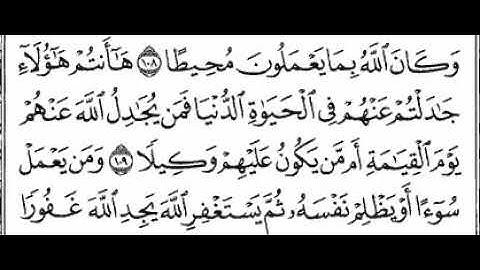 وَكَانَ ٱللَّهُ بِمَا يَعْمَلُونَ مُحِيطًا ١٠٨ هَٰٓأَنتُمْ هَٰٓؤُلَآءِ
جَٰدَلْتُمْ عَنْهُمْ فِى ٱلْحَيَوٰةِ ٱلدُّنْيَا فَمَن يُجَٰدِلُ ٱللَّهَ عَنْهُمْ
يَوْمَ ٱلْقِيَٰمَةِ أَم مَّن يَكُونُ عَلَيْهِمْ وَكِيلًا ١٠٩ وَمَن يَعْمَلْ
سُوٓءًا أَوْ يَظْلِمْ نَفْسَهُۥ ثُمَّ يَسْتَغْفِرِ ٱللَّهَ يَجِدِ ٱللَّهَ غَفُورًا